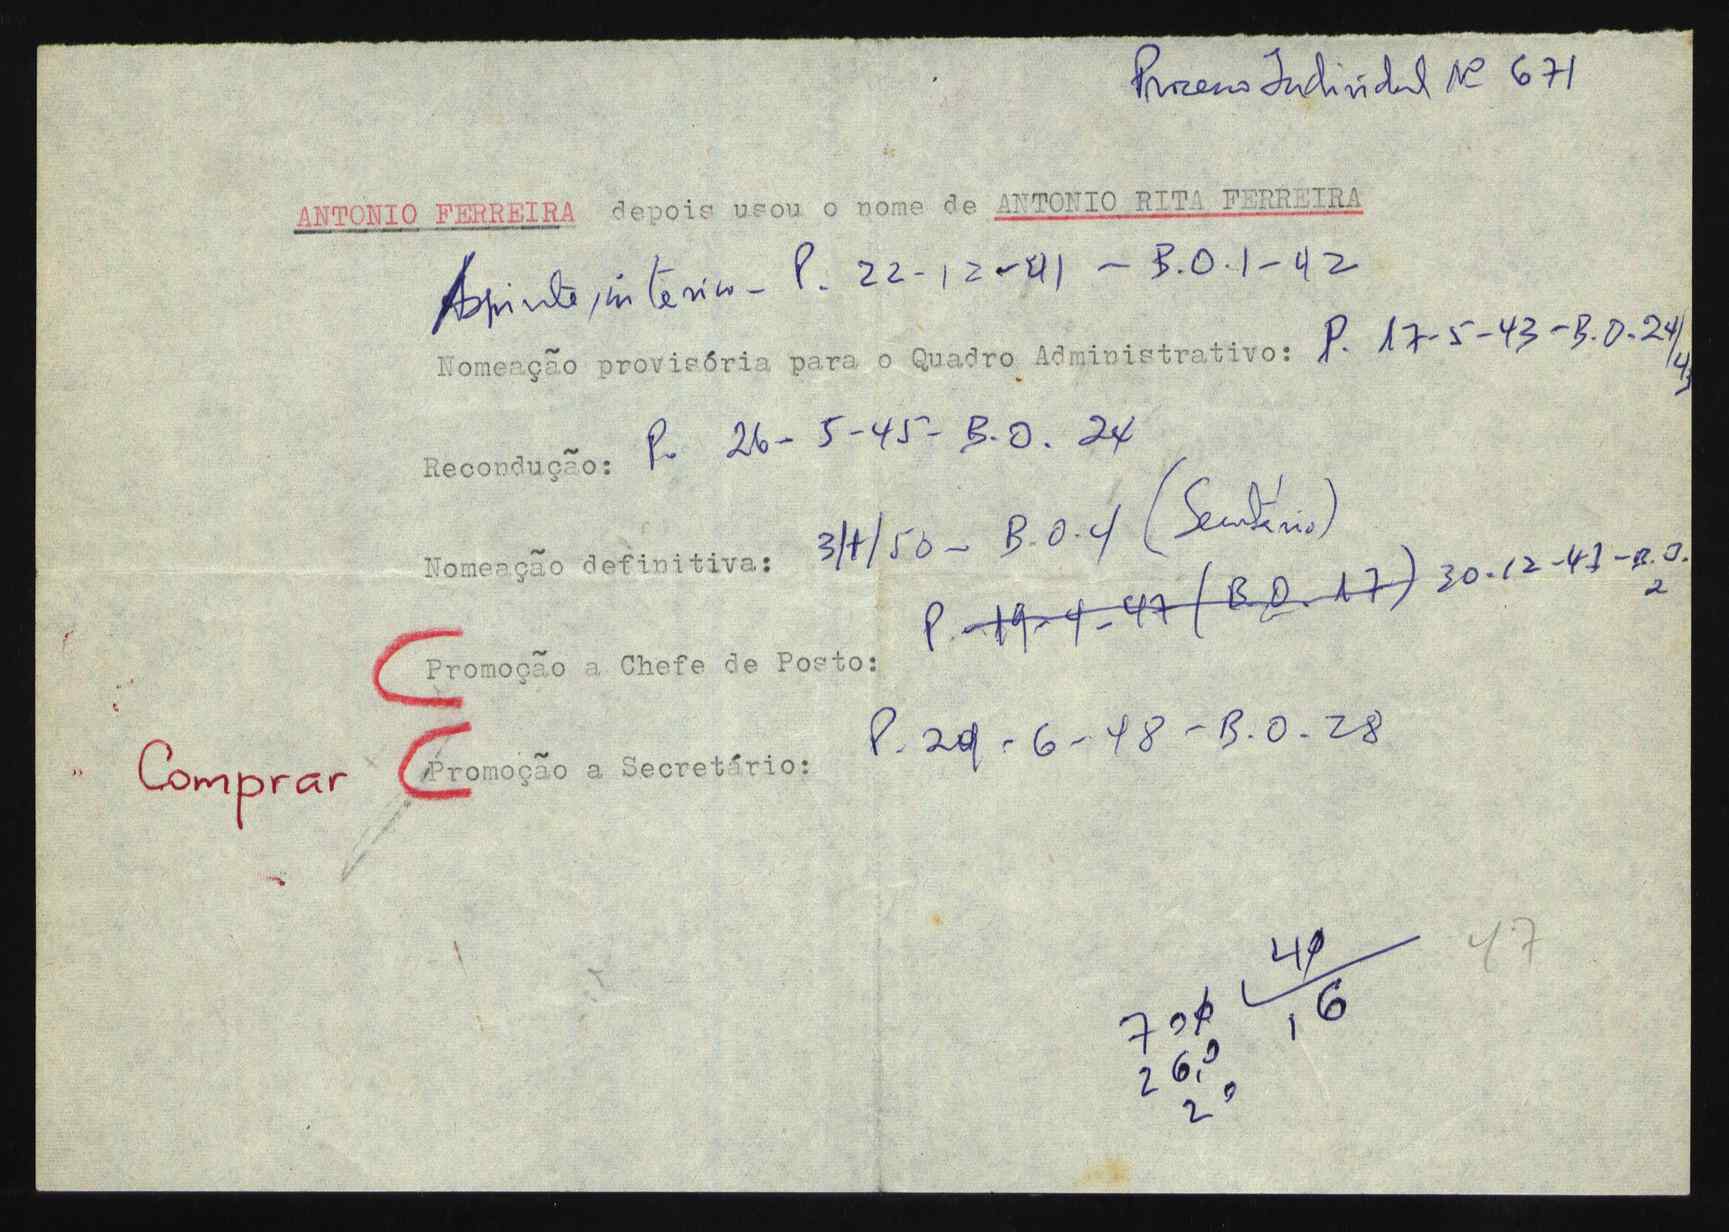 Processo Individual Nº 671
ANTONIO FERREIRA depois usou o nome de ANTONIO RITA FERREIRA
Aspirante, interino - P. 22-12-41 - B.O. 1-42
Nomeação provisória para o Quadro Administrativo: P. 17-5-43 - B.O. 24/43
Recondução: P. 26-5-45 - B.O. 24
Nomeação definitiva: 3/4/50 - B.O. 4 (Secretário)
P. 19-4-47 (B.O. 17) 30-12-43 - B.O. 2
Promoção a Chefe de Posto:
P. 29-6-48 - B.O. 28
Comprar Promoção a Secretário:
47
16
26
2